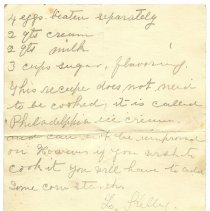 4 eggs beaten separately
2 qts cream
2 qts milk
3 cups sugar, flavoring.
This recipe does not need
to be cooked, it is called
Philadelphia ice cream.
and can not be improved
on However if you wish to
cook it you will have to add
some corn starch